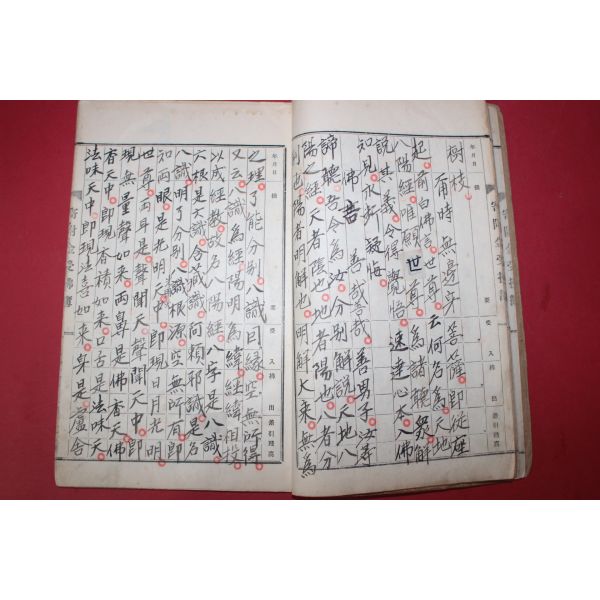 樹枝
爾時無邊身菩薩即從座
起前白佛言世尊云何名為天地
八陽經唯願世尊為諸聽眾解
說其義令得覺悟速達心本入佛
知見永斷疑悔
佛言善哉善哉善男子汝等
諦聽吾今為汝分別解說天地八
陽之經天者陰也地者陽也八者分
別也陽者明解也明解大乘無為
之理了能分別八識因緣空無所得
又云八識為經陽明為緯經緯相投
以成經教故名八陽經八字是八識
六根是六識含藏識阿賴耶識是名
八識明了分別八識根源空無所有即
知兩眼是光明天光明天中即現日月光明
世尊兩耳是聲聞天聲聞天中即
現無量聲如來兩鼻是佛香天佛
香天中即現香積如來口舌是法味天
法味天中即現法喜如來身是盧舍